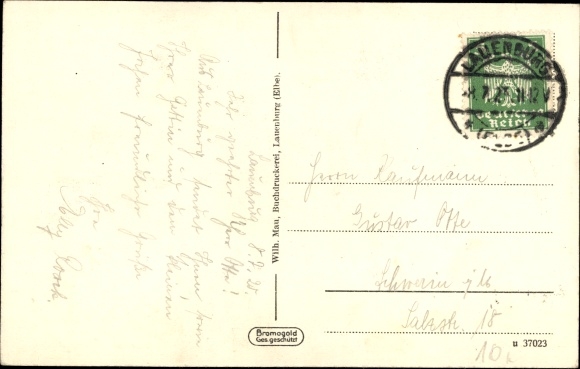 Lauenburg, 8.7.25.
Sehr geehrter Herr Otte!
Aus Lauenburg sendet Ihnen,
Ihrer Gattin und den Kleinen
freundliche Grüße
Ihre
Wilh. Mau, Buchdruckerei, Lauenburg (Elbe).
Bromogold
Ges. geschützt
LAUENBURG
(ELBE)
Deutsches
Reich
Herrn Kaufmann
Gustav Otte
Schwerin i/M.
Salzstr. 18
u 37023
10